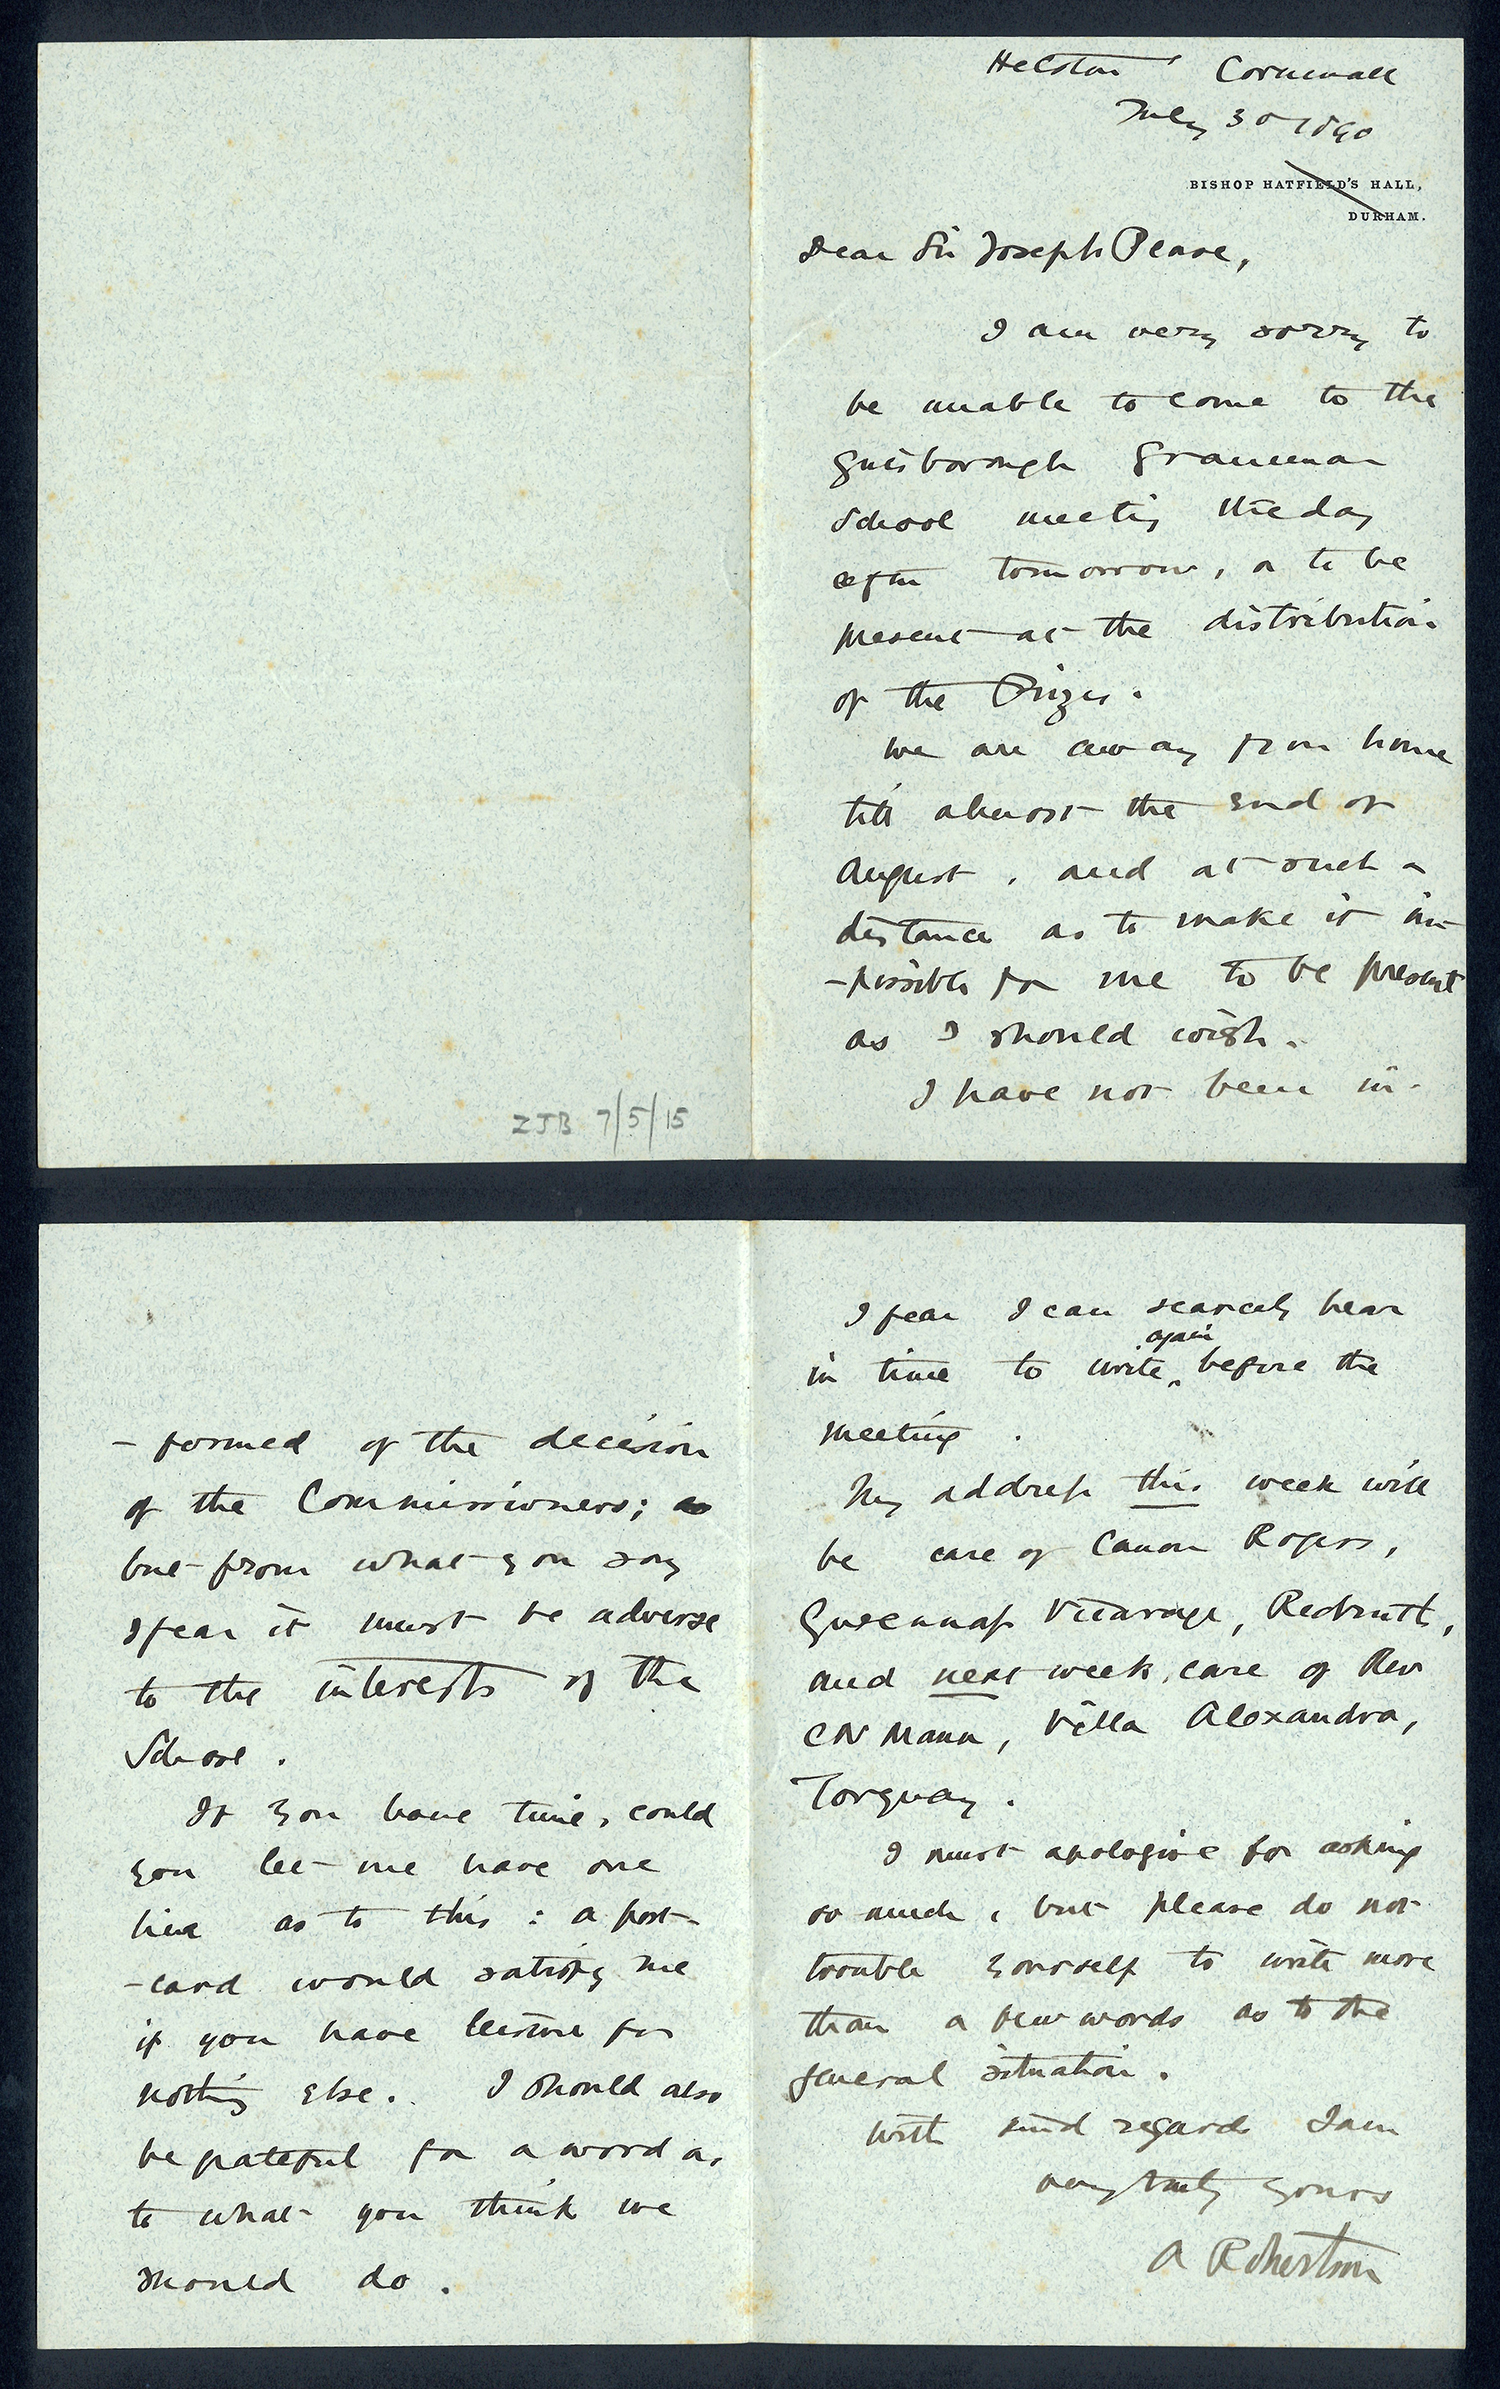 Helston Cornwall
July 30 1890
BISHOP HATFIELD'S HALL,
DURHAM.
Dear Sir Joseph Pease,
I am very sorry to
be unable to come to the
Guisborough Grammar
School meeting the day
after tomorrow, or to be
present at the distribution
of the Prizes.
We are away from home
till almost the end of
August, and at such a
distance as to make it im-
-possible for me to be present
as I should wish.
I have not been in-
ZJB 7/5/15
-formed of the decision
of the Commissioners;
but from what you say
I fear it must be adverse
to the interests of the
School.
If you have time, could
you let me have one
line as to this: a post-
-card would satisfy me
if you have leisure for
nothing else. I should also
be grateful for a word as
to what you think we
should do.
I fear I can scarcely hear
again
in time to write ‸ before the
meeting.
My address this week will
be care of Canon Rogers,
Gwennap Vicarage, Redruth,
and next week, care of Rev
C N Mann, Villa Alexandra,
Torquay.
I must apologise for asking
so much, but please do not
trouble yourself to write more
than a few words as to the
general situation.
With kind regards I am
very truly yours
A Robertson